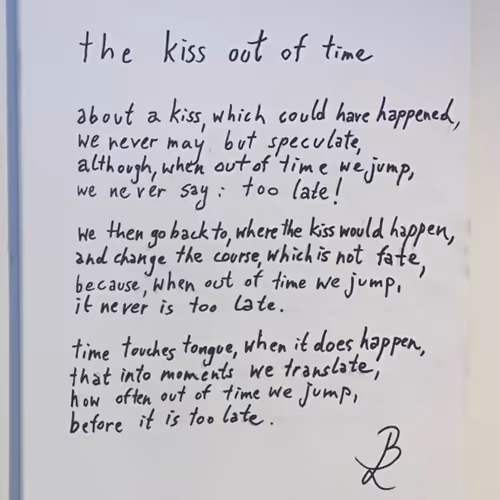 the kiss out of time
about a kiss, which could have happened,
we never may but speculate,
although, when out of time we jump,
we never say: too late!
we then go back to, where the kiss would happen,
and change the course, which is not fate,
because, when out of time we jump,
it never is too late.
time touches tongue, when it does happen,
that into moments we translate,
how often out of time we jump,
before it is too late.